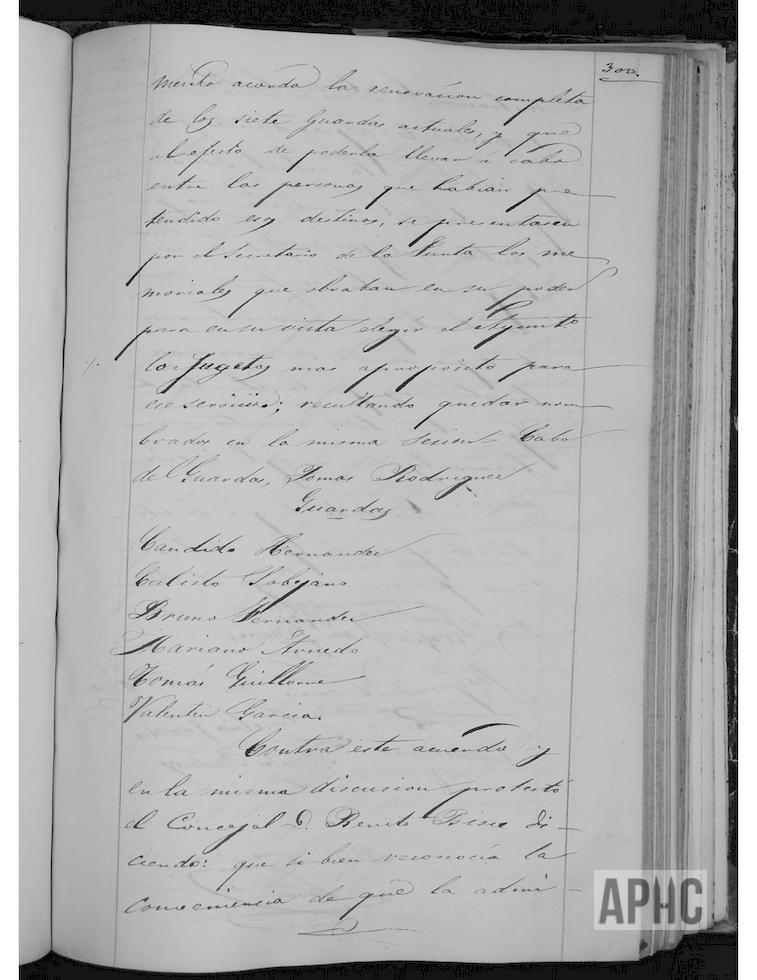 300.
miento acordó la renovacion completa
de los siete Guardas actuales, y que
al efecto de poderla llevar á cabo
entre las personas que habian pre
tendido esos destinos, se presentasen
por el Secretario de la Junta los me
moriales que obraban en su poder
para en su vista elegir el Ayunt.º
los sugetos mas aproposito para
ese servicio; resultando quedar nom
brados en la misma sesion Cabo
de Guardas, Tomas Rodriguez
Guardas
Candido Hernandez
Calisto Sobejano
Bruno Fernandez
Mariano Arnedo
Tomás Guillorme
Valentin Garcia.
Contra este acuerdo y
en la misma discusion protestó
el Concejal D. Benito di-
ciendo: que si bien reconocia la
conveniencia de que la admi-
APHC